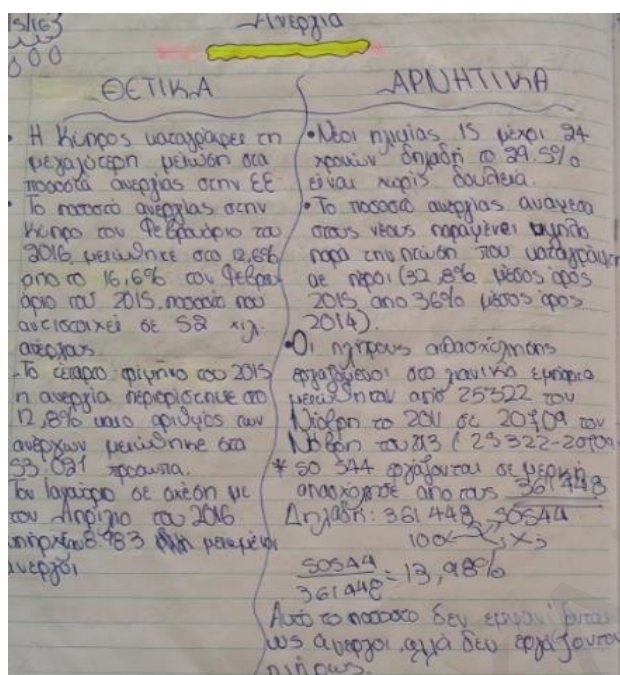 5/163
Ανεργία
ΘΕΤΙΚΑ
• Η Κύπρος καταγράφει τη
μεγαλύτερη μείωση στα
ποσοστά ανεργίας στην ΕΕ
• Το ποσοστό ανεργίας στην
Κύπρο τον Φεβρουάριο του
2016, μειώθηκε στο 12,6%
από το 16,6% τον Φεβρου
άριο του 2015, ποσοστό που
αντιστοιχεί σε 52 χιλ.
άνεργους.
-Το τέταρτο τρίμηνο του 2015
η ανεργία περιορίστηκε στο
12,8% και ο αριθμός των
ανέργων μειώθηκε στα
53.021 πρόσωπα.
Τον Ιανουάριο σε σχέση με
τον Απρίλιο του 2016
υπήρχαν 8.983 μειωμένοι
άνεργοι
ΑΡΝΗΤΙΚΑ
• Νέοι ηλικίας 15 μέχρι 24
χρονών δηλαδή το 29.5%
είναι χωρίς δουλειά.
• Το ποσοστό ανεργίας ανάμεσα
στους νέους παραμένει ψηλό
παρά την πτώση που καταγράφηκε
πέρσι (32,8% μέσος όρος
2015 από 36% μέσος όρος
2014).
• Οι πλήρους απασχόλησης
εργαζόμενοι στο λιανικό εμπόριο
μειώθηκαν από 25322 τον
Νιόβρη το 2011 σε 20709 τον
Νιόβρη του 2013 (25322-20709
* 50 544 εργάζονται σε μερική
απασχόληση από τους 361448
Δηλαδή: 361 448 50544
100 Χ;
50544
361448 = 13,98%
Αυτό το ποσοστό δεν εμφανίζονται
ως άνεργοι, αλλά δεν εργάζονται
πλήρως.